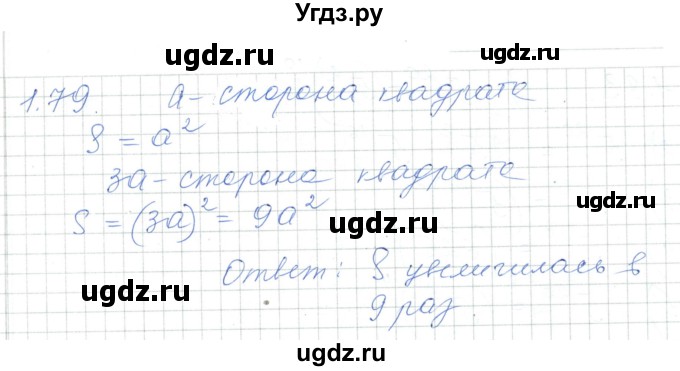 Угдз.ру
ugdz.ru ugdz.ru
1.79. а - сторона квадрата
S = a²
3а - сторона квадрата
ugdz.ru ugdz.ru
S = (3a)² = 9a²
Ответ: S увеличилась в
ugdz.ru ugdz.ru
9 раз.
ugdz.ru